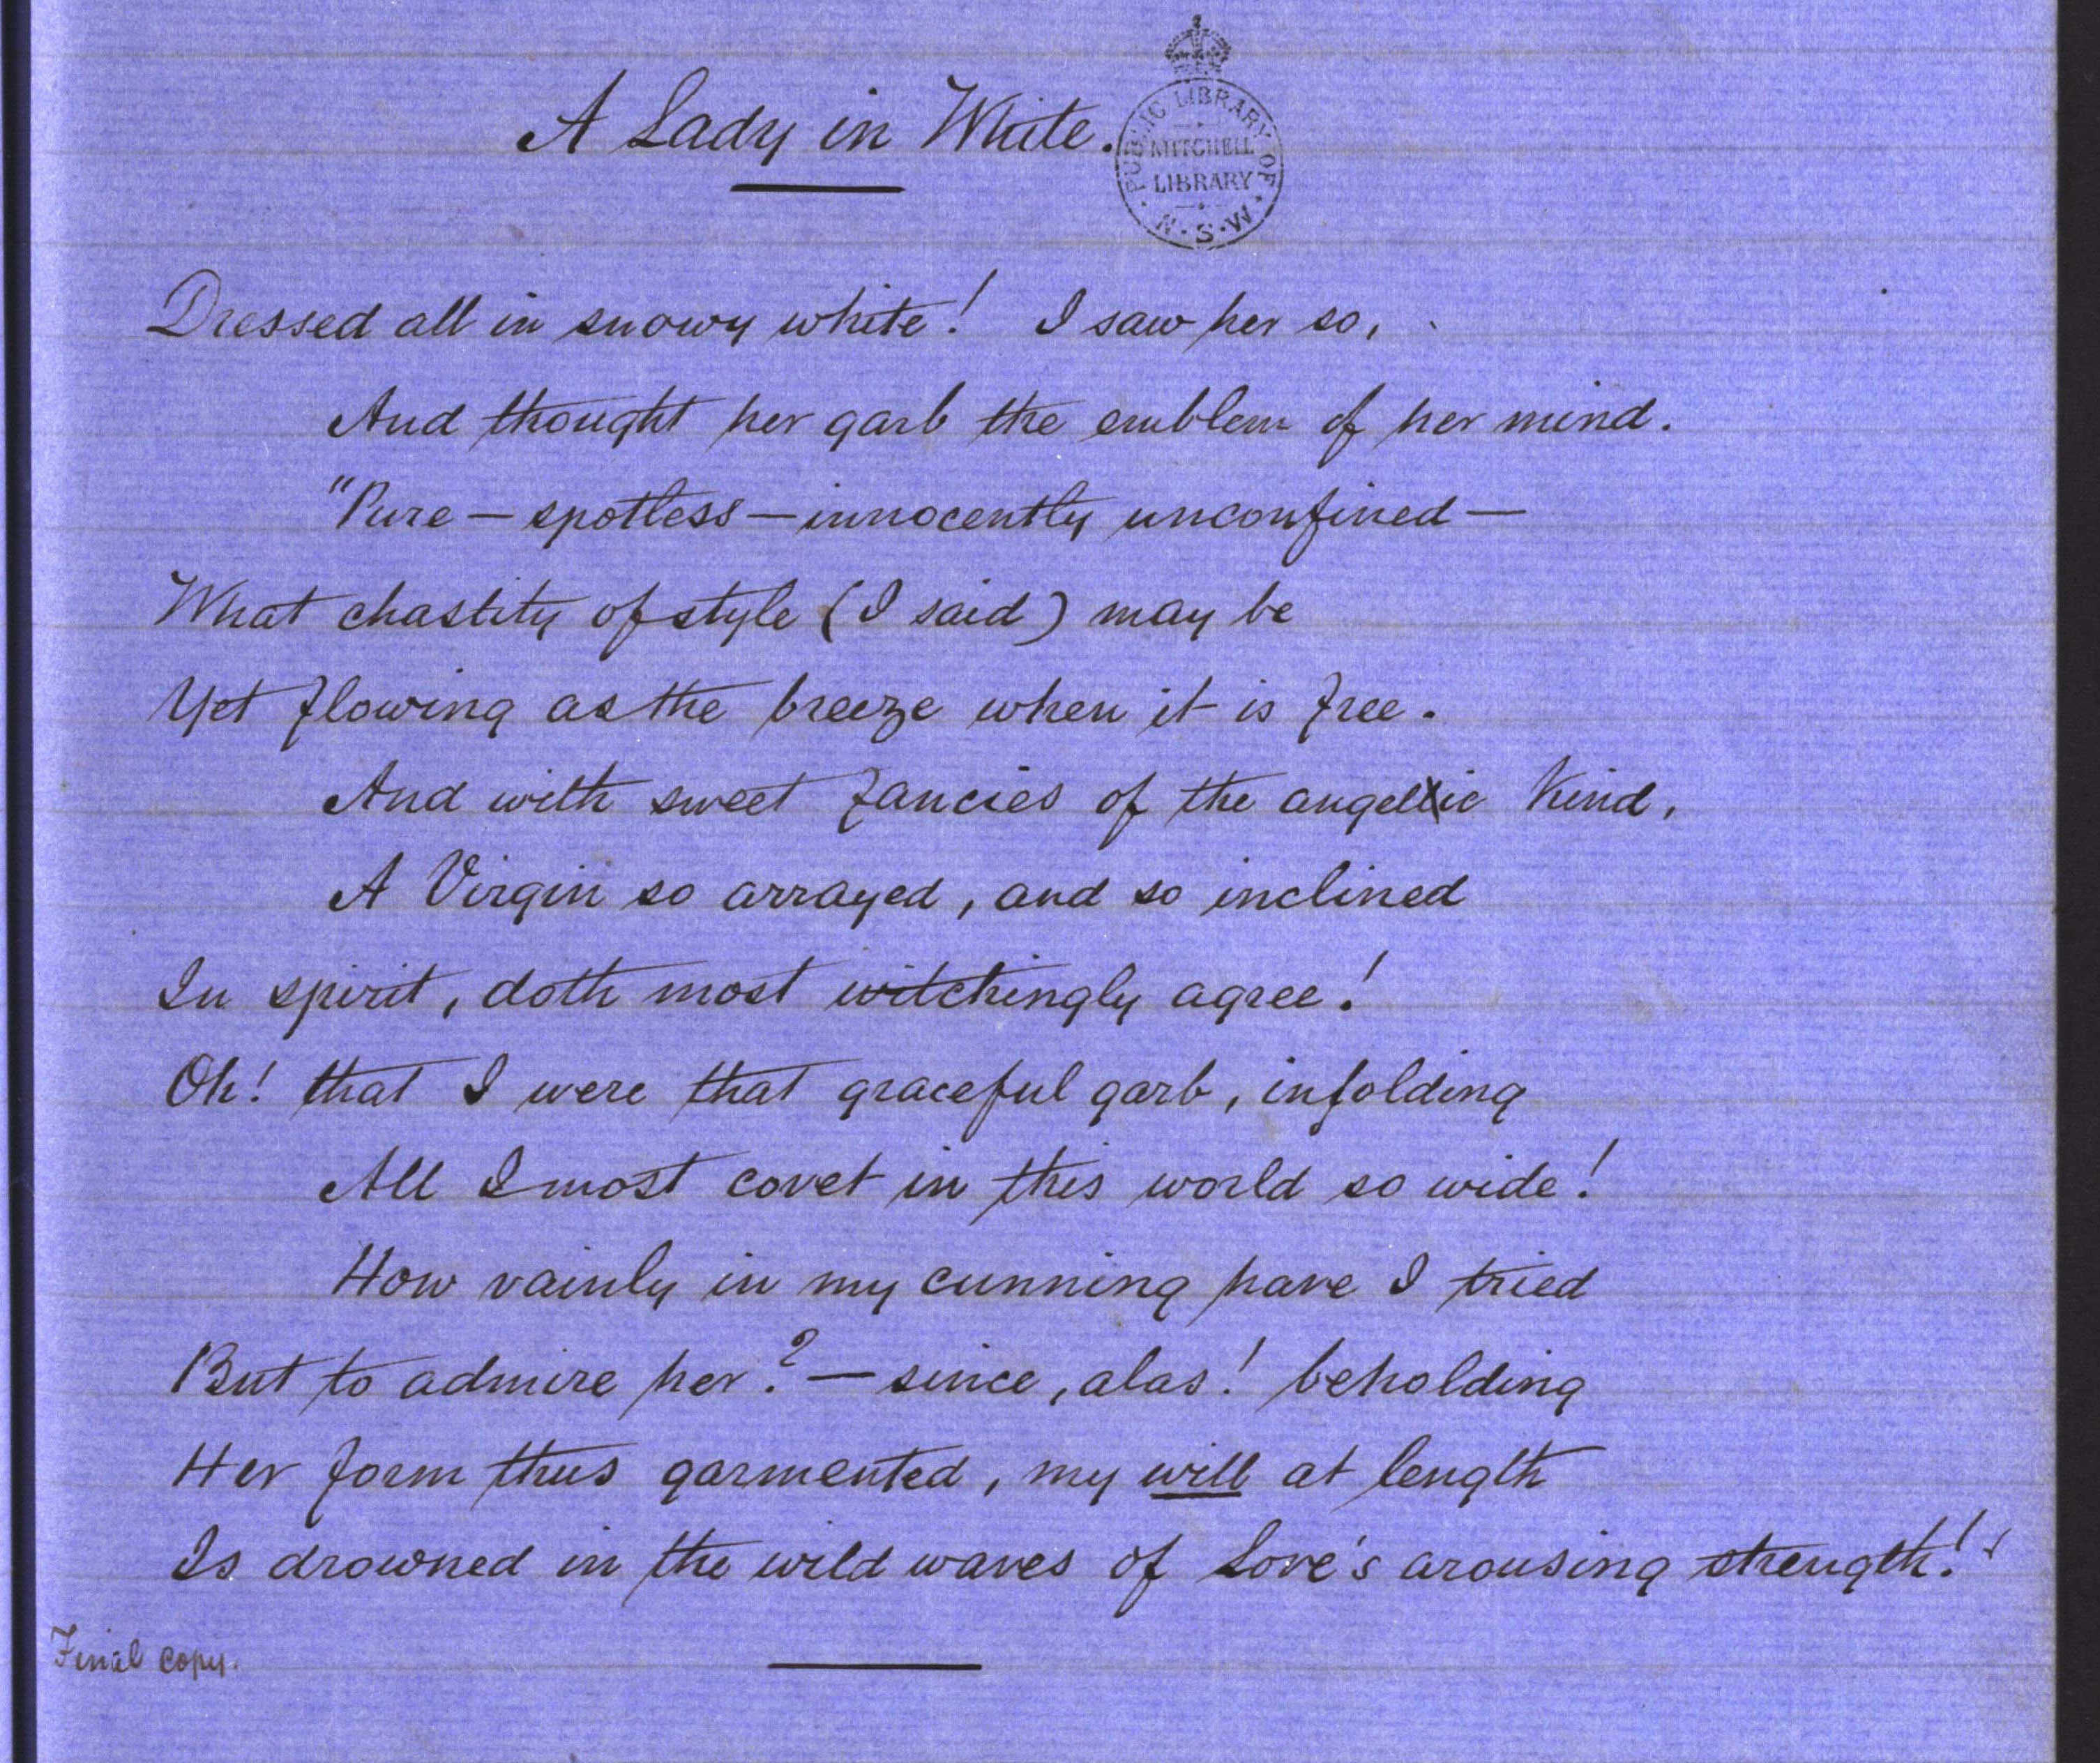 A Lady in White.
PUBLIC LIBRARY OF
MITCHELL
LIBRARY
N.S.W
Dressed all in snowy white! I saw her so,
And thought her garb the emblem of her mind.
"Pure — spotless — innocently unconfined —
What chastity of style (I said) may be
Yet flowing as the breeze when it is free.
And with sweet fancies of the angelic kind,
A Virgin so arrayed, and so inclined
In spirit, doth most witchingly agree!
Oh! that I were that graceful garb, infolding
All I most covet in this world so wide!
How vainly in my cunning have I tried
But to admire her? — since, alas! beholding
Her form thus garmented, my will at length
Is drowned in the wild waves of Love's arousing strength!
Final copy.